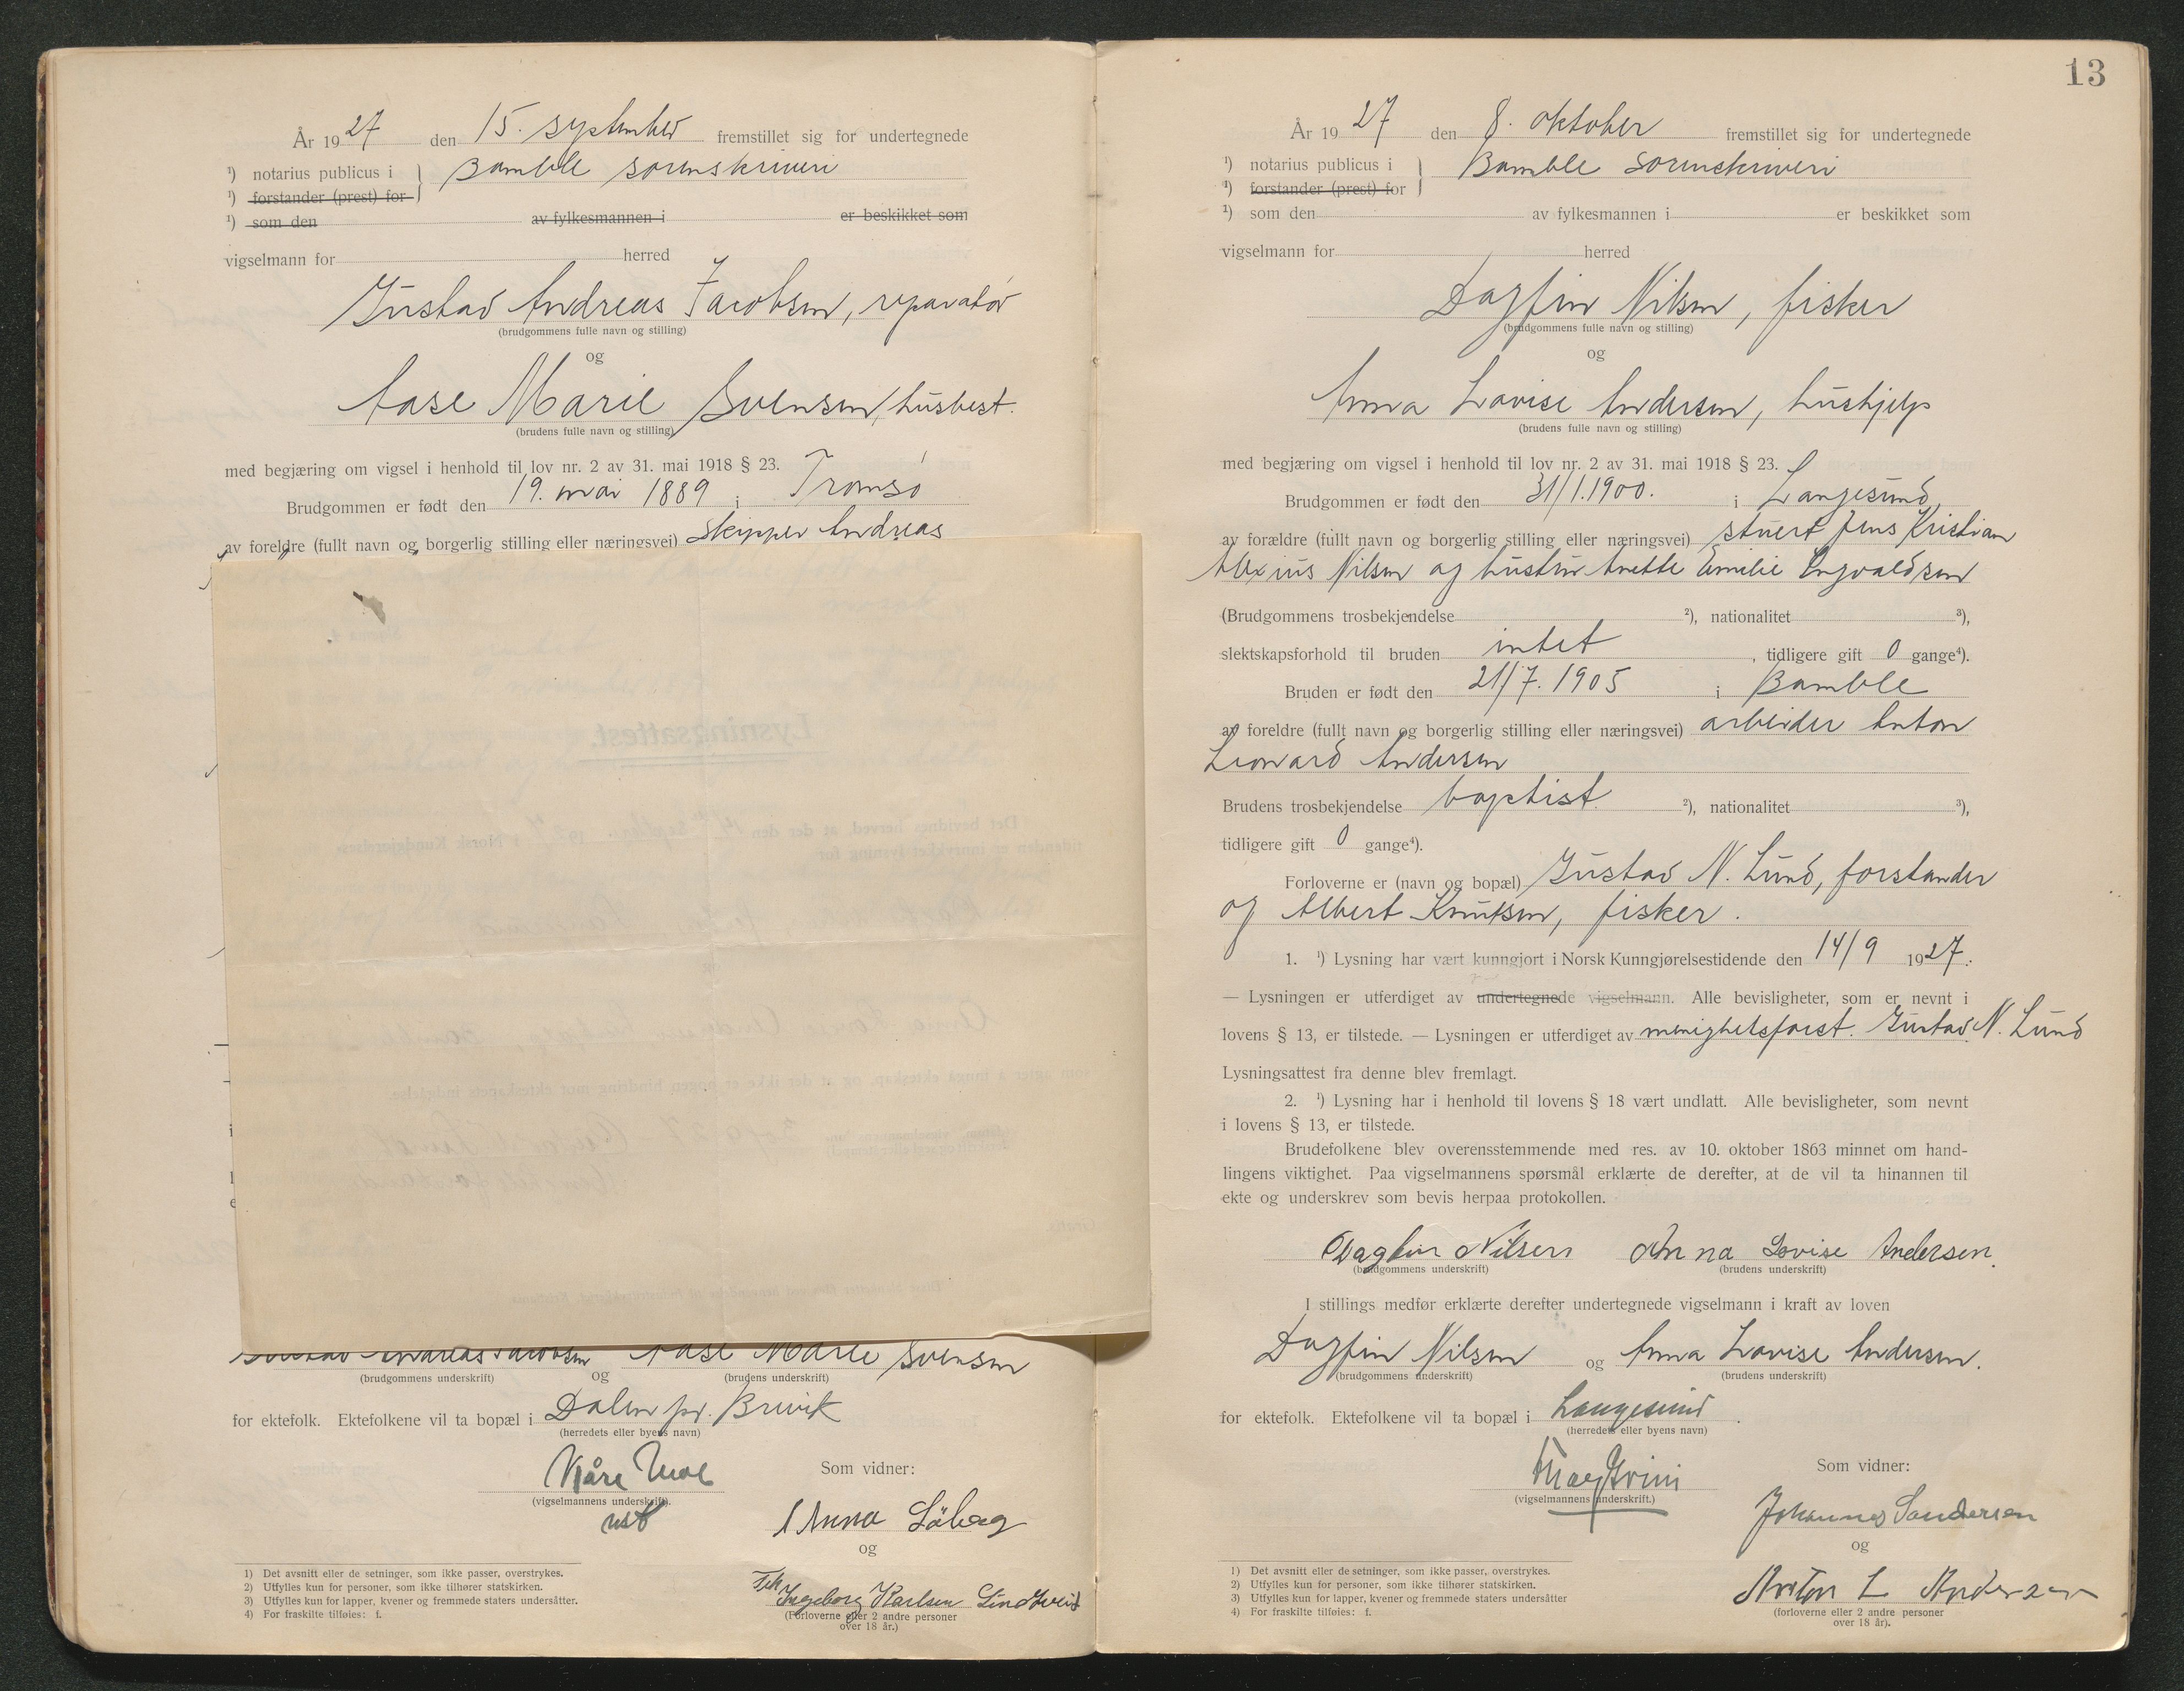 År 1927 den 15. september fremstillet sig for undertegnede
¹) notarius publicus i Bamble sorenskriveri
¹) forstander (prest) for
¹) som den av fylkesmannen i er beskikket som
vigselmann for herred
Gustav Andreas Jacobsen, reparatør
(brudgommens fulle navn og stilling)
og
Aase Marie Svensen, husbest.
(brudens fulle navn og stilling)
med begjæring om vigsel i henhold til lov nr. 2 av 31. mai 1918 § 23.
Brudgommen er født den 19. mai 1889 i Tromsø
av foreldre (fullt navn og borgerlig stilling eller næringsvei) skipper Andreas
Lysningsattest.
Gustav Andreas Jacobsen Aase Marie Svensen
(brudgommens underskrift) og (brudens underskrift)
for ektefolk. Ektefolkene vil ta bopæl i Dalen pr. Brevik
(herredets eller byens navn)
Kåre
(vigselmannens underskrift).
Som vidner:
Anna Søberg
og
Ingeborg Karlsen
(Forloverne eller 2 andre personer
over 18 år.)
1) Det avsnitt eller de setninger, som ikke passer, overstrykes.
2) Utfylles kun for personer, som ikke tilhører statskirken.
3) Utfylles kun for lapper, kvener og fremmede staters undersåtter.
4) For fraskilte tilføies: f.
13
År 1927 den 8. oktober fremstillet sig for undertegnede
¹) notarius publicus i Bamble sorenskriveri
¹) forstander (prest) for
¹) som den av fylkesmannen i er beskikket som
vigselmann for herred
Dagfin Nilsen, fisker
(brudgommens fulle navn og stilling)
og
Anna Lovise Andersen, hushjelp
(brudens fulle navn og stilling)
med begjæring om vigsel i henhold til lov nr. 2 av 31. mai 1918 § 23.
Brudgommen er født den 31/1.1900. i Langesund
av forældre (fullt navn og borgerlig stilling eller næringsvei) stuert Jens Kristian
Alexius Nilsen og hustru Anette Emilie Ingvaldsen
(Brudgommens trosbekjendelse ²), nationalitet ³),
slektskapsforhold til bruden intet , tidligere gift 0 gange⁴).
Bruden er født den 21/7. 1905 i Bamble
av foreldre (fullt navn og borgerlig stilling eller næringsvei) arbeider Anton
Leonard Andersen
Brudens trosbekjendelse baptist ²), nationalitet ³),
tidligere gift 0 gange⁴).
Forloverne er (navn og bopæl) Gustav N. Lund, forstander
og Albert Knutsen, fisker.
1. ¹) Lysning har vært kunngjort i Norsk Kunngjørelsestidende den 14/9 1927.
— Lysningen er utferdiget av undertegnede vigselmann. Alle bevisligheter, som er nevnt i
lovens § 13, er tilstede. — Lysningen er utferdiget av menighetsforst. Gustav N. Lund
Lysningsattest fra denne blev fremlagt.
2. ¹) Lysning har i henhold til lovens § 18 vært undlatt. Alle bevisligheter, som nevnt
i lovens § 13, er tilstede.
Brudefolkene blev overensstemmende med res. av 10. oktober 1863 minnet om hand-
lingens viktighet. Paa vigselmannens spørsmål erklærte de derefter, at de vil ta hinannen til
ekte og underskrev som bevis herpaa protokollen.
Dagfin Nilsen Anna Lovise Andersen.
(brudgommens underskrift) (brudens underskrift)
I stillings medfør erklærte derefter undertegnede vigselmann i kraft av loven
Dagfin Nilsen og Anna Lovise Andersen.
(brudgommens underskrift) (brudens underskrift)
for ektefolk. Ektefolkene vil ta bopæl i Langesund .
(herredets eller byens navn)
(vigselmannens underskrift.)
Som vidner:
Johannes Sandersen
og
Anton L Andersen
(forloverne eller 2 andre personer
over 18 år).
1) Det avsnitt eller de setninger, som ikke passer, overstrykes.
2) Utfylles kun for personer, som ikke tilhører statskirken.
3) Utfylles kun for lapper, kvener og fremmede staters undersåtter
4) For fraskilte tilføies: f.